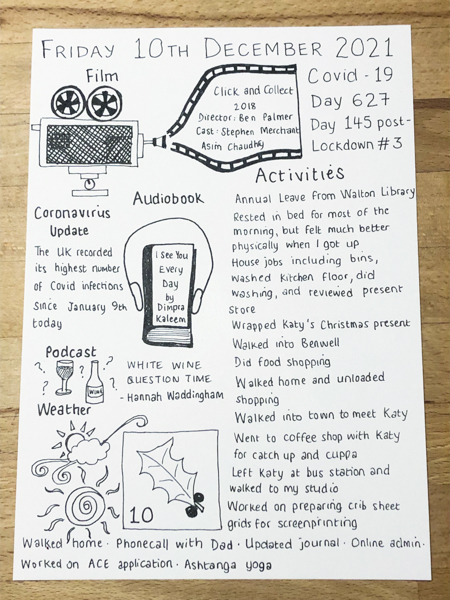 FRIDAY 10TH DECEMBER 2021
Film
Click and Collect
2018
Director: Ben Palmer
Cast: Stephen Merchant
Asim Chaudhry
Covid-19
Day 627
Day 145 post-
Lockdown #3
Coronavirus
Update
The UK recorded
its highest number
of Covid infections
since January 9th
today
Audiobook
I See You
Every
Day
by
Dimpra
Kaleem
Podcast
? ? ? ?
WINE
WHITE WINE
QUESTION TIME
- Hannah Waddingham
Weather
10
Activities
Annual Leave from Walton Library
Rested in bed for most of the
morning, but felt much better
physically when I got up
House jobs including bins,
washed kitchen floor, did
washing, and reviewed present
store
Wrapped Katy's Christmas present
Walked into Benwell
Did food shopping
Walked home and unloaded
shopping
Walked into town to meet Katy
Went to coffee shop with Katy
for catch up and cuppa
Left Katy at bus station and
walked to my studio
Worked on preparing crib sheet
grids for screenprinting
Walked home · Phonecall with Dad · Updated journal · Online admin ·
Worked on ACE application · Ashtanga yoga